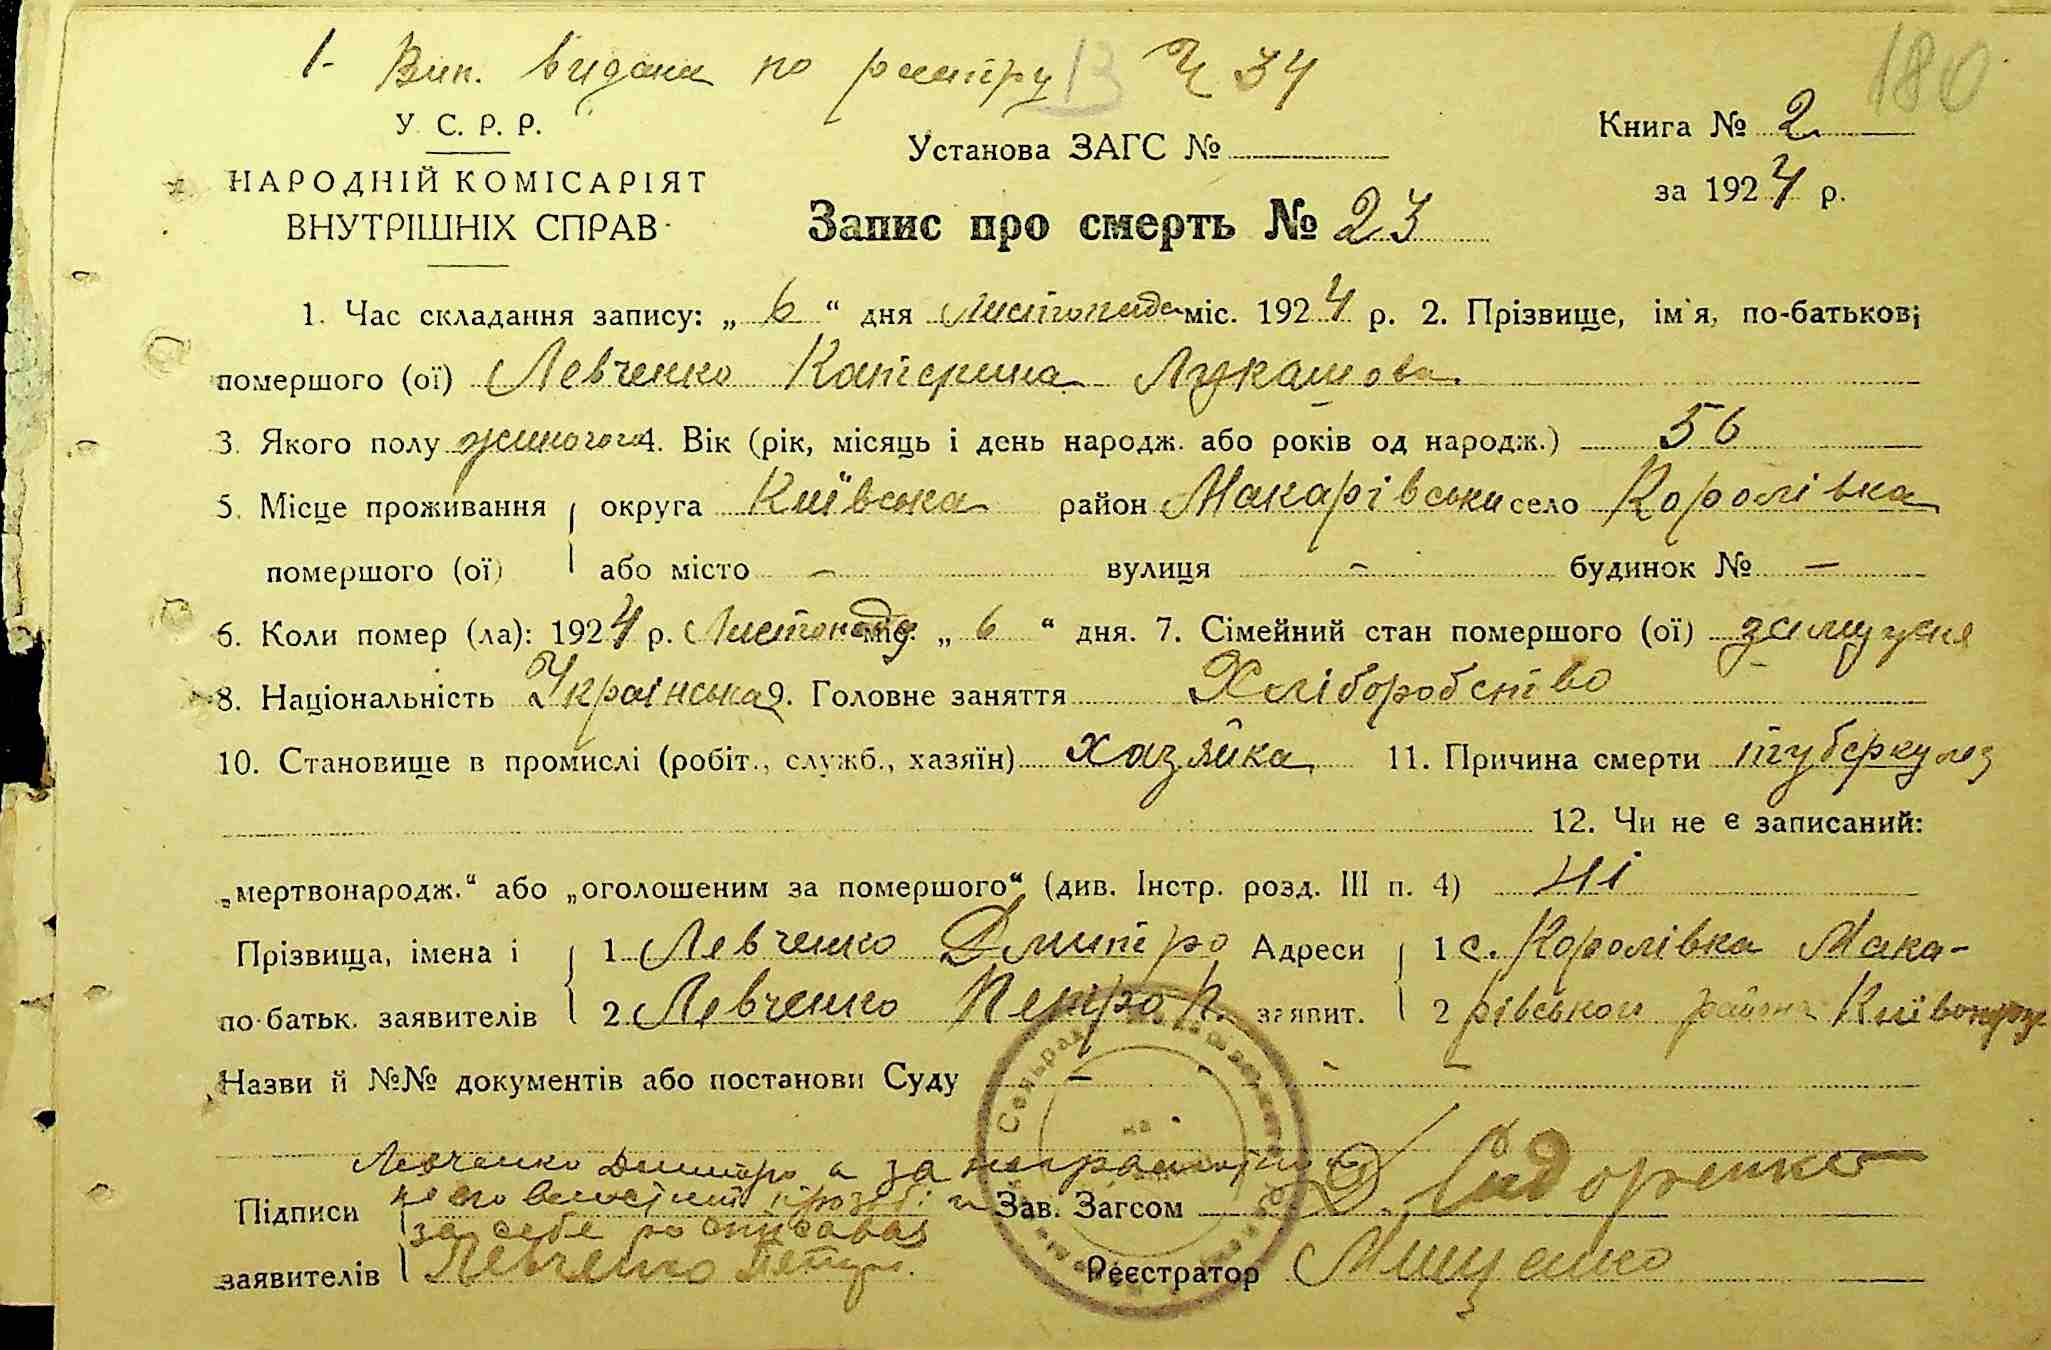 1. Вип. видана по реєстру 13 Ч 34
180
У. С. Р. Р.
НАРОДНІЙ КОМІСАРІЯТ
ВНУТРІШНІХ СПРАВ
Установа ЗАГС №
Книга № 2
за 1924 р.
Запис про смерть № 23
1. Час складання запису: „ 6 “ дня Листопада міс. 1924 р. 2. Прізвище, ім'я, по-батькові
помершого (ої) Левченко Катерина Лукашова
3. Якого полу жиночого 4. Вік (рік, місяць і день народж. або років од народж.) 56
5. Місце проживання округа Київська район Макарівськи село Королівка
помершого (ої) або місто – вулиця – будинок № –
6. Коли помер (ла): 1924 р. Листопада міс. „ 6 “ дня. 7. Сімейний стан помершого (ої) замужня
8. Національність Українська 9. Головне заняття Хліборобство
10. Становище в промислі (робіт., служб., хазяїн) хазяйка 11. Причина смерти туберкулез
12. Чи не є записаний:
„мертвонародж.“ або „оголошеним за помершого“ (див. Інстр. розд. III п. 4) Ні
Прізвища, імена і 1 Левченко Дмитро Адреси 1 с. Королівка Мака-
по-батьк. заявителів 2 Левченко Петро П. заявит. 2 рівського района Київокруг
Назви й №№ документів або постанови Суду – –
Левченко Дмитро а за неграмотного
Підписи його власній прозьбі и Зав. Загсом Д. Сидоренко
за себе росписавсь
заявителів Левченко Петро Реєстратор Мищенко